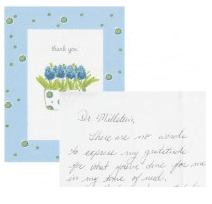 thank you
Dr. Millstein,
There are no words
to express my gratitude
for what you've done for me
in my time of need.